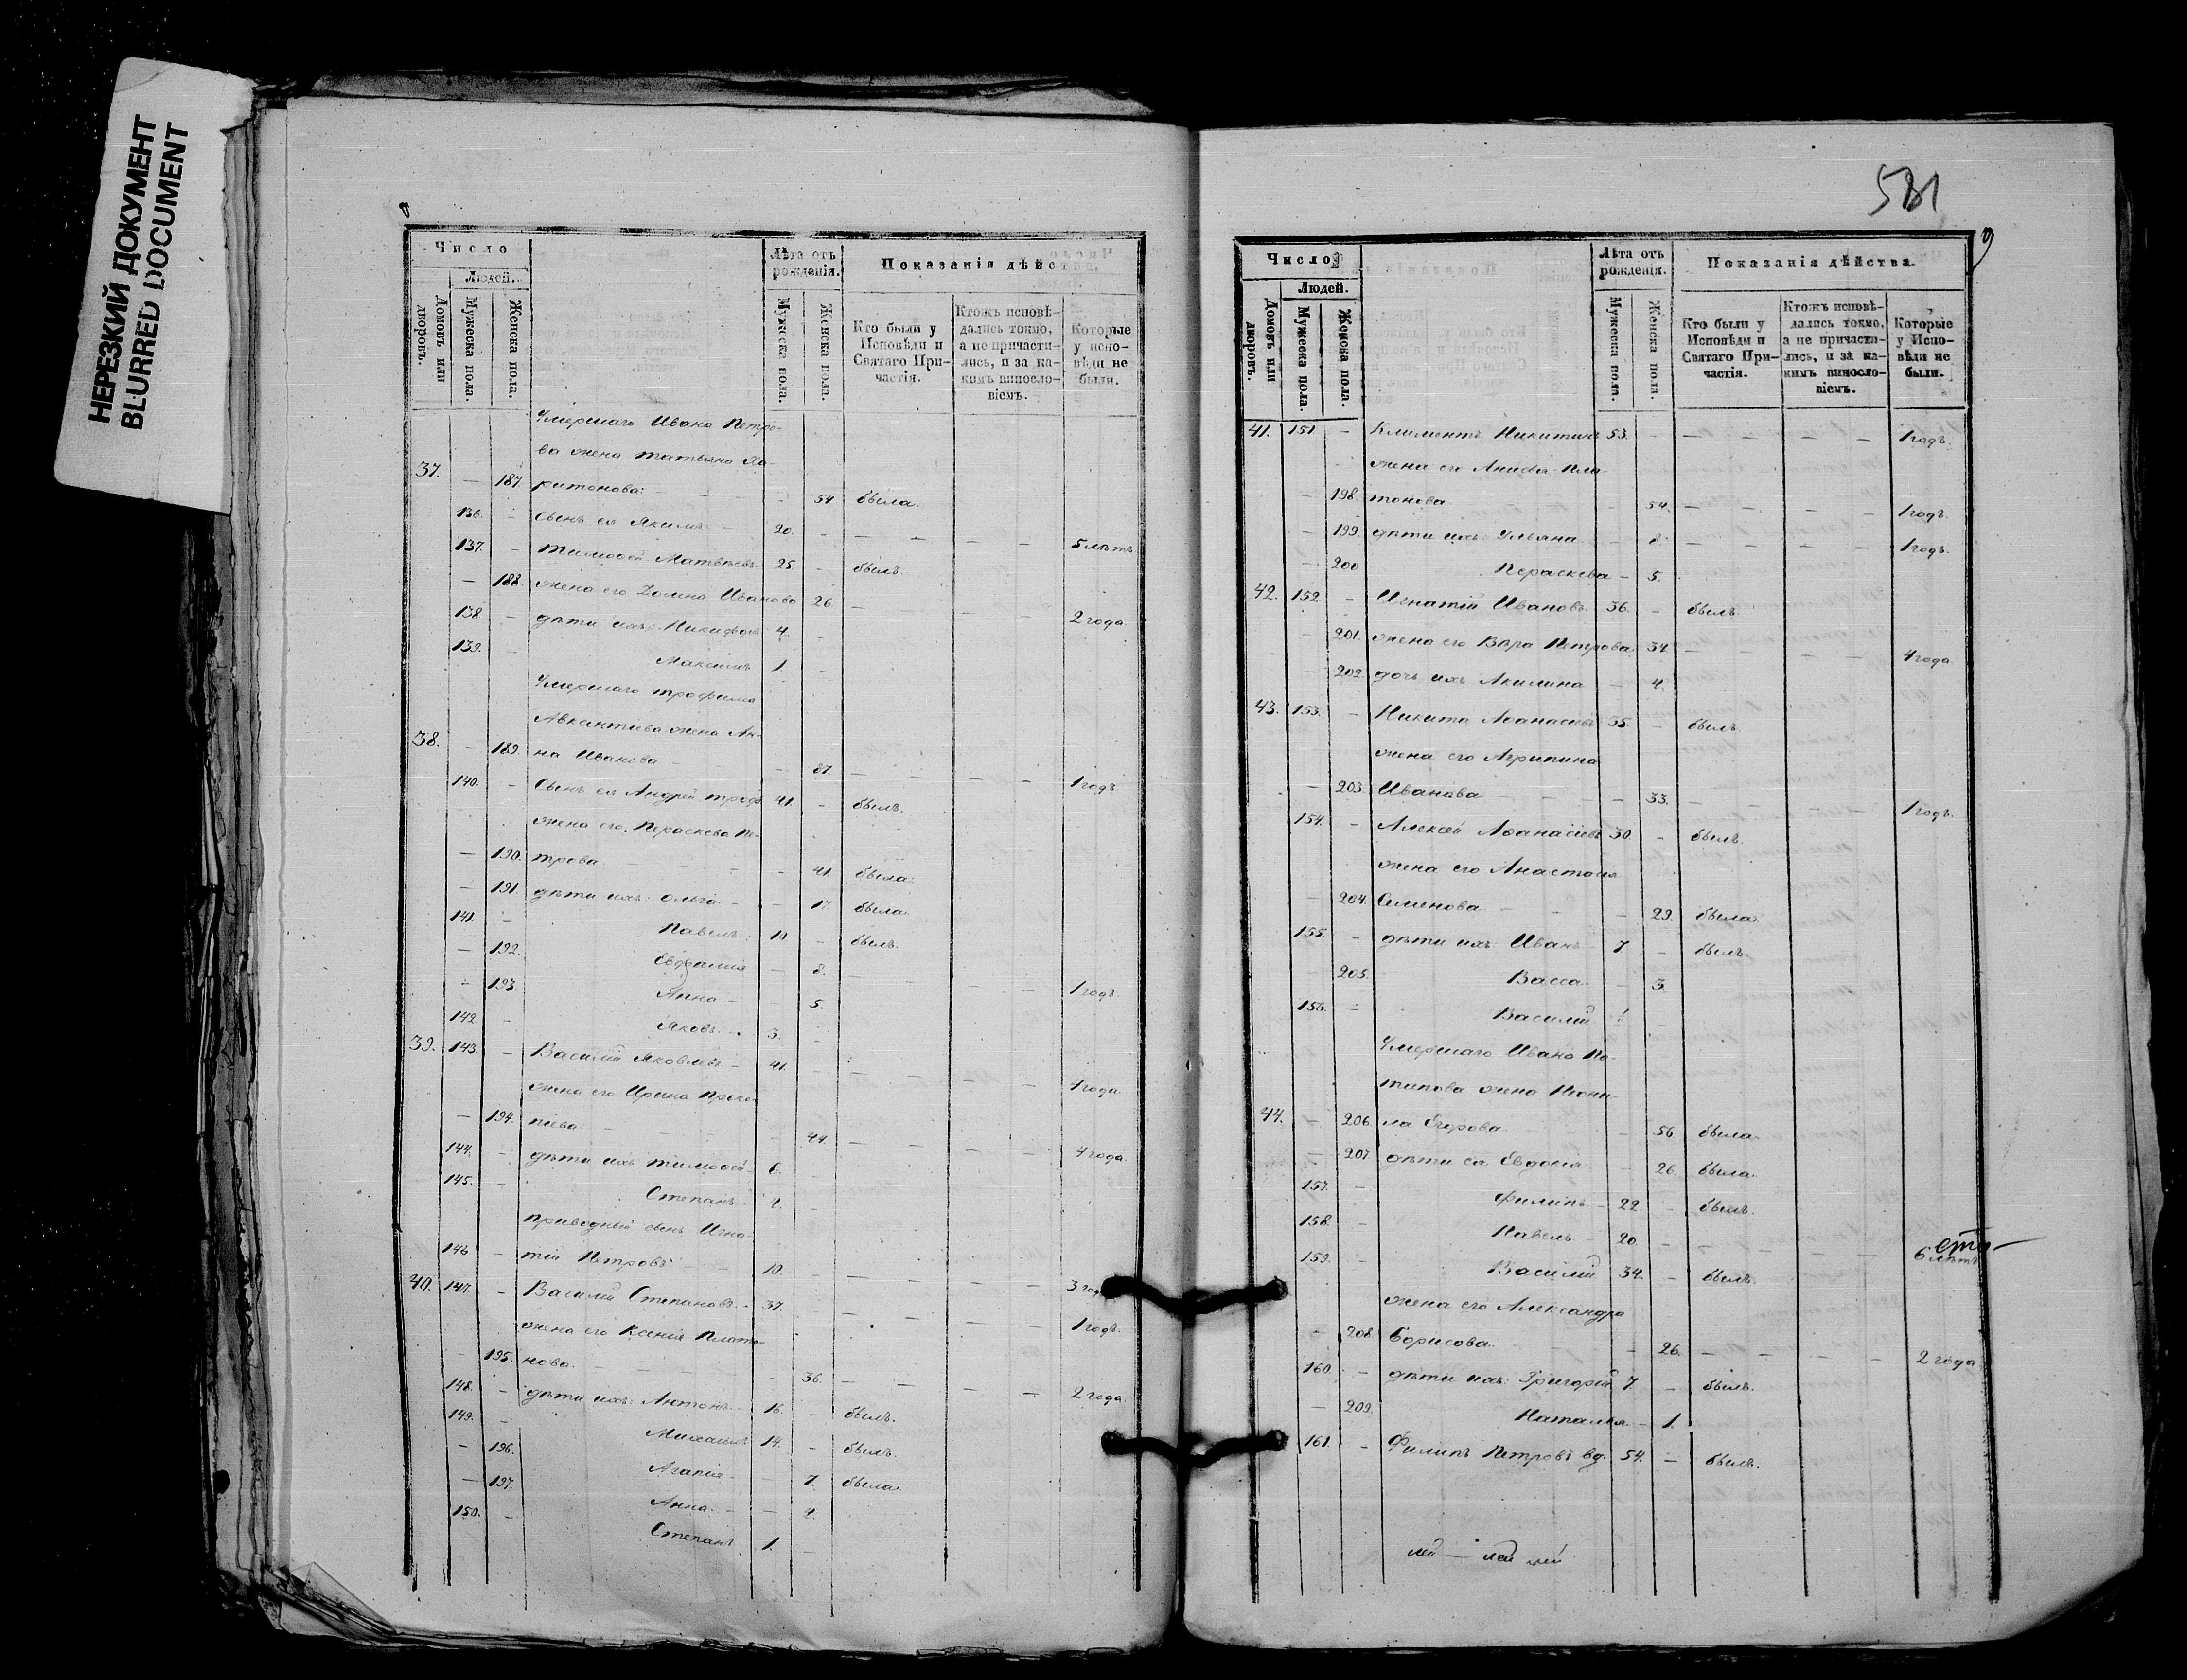 НЕРЕЗКИЙ ДОКУМЕНТ
BLURRED DOCUMENT
8
Число
Людей.
Домовъ или дворовъ.
Мужеска пола.
Женска пола.
Лѣта отъ рожденія.
Мужеска пола.
Женска пола.
Показанія дѣйства.
Кто были у Исповѣди и Святаго При-частія.
Ктожъ исповѣ-дались токмо, а не причасти-лись, и за ка-кимъ винносло-віемъ.
Которые у испо-вѣди не были.
Умершаго Ивана Петро-
ва жена Татьяна Ха-
37. — 187. ритонова: - - 54 была.
136. - Сынъ ея Якимъ - 20. - — — — — 5 лѣтъ
137. - Тимоѳей Матвѣевъ 25 - былъ.
— 188. жена его Домна Иванова 26. — — — 2 года
138. - дѣти ихъ: Никифоръ 4. -
139. - Максимъ 1. -
Умершаго Трофима
Авксентіева жена Ан-
38. — 189. на Иванова - - 87. — — — — 1 годъ
140. - Сынъ ея Андрей Троф. 41. - былъ.
жена его Пераскева Пе-
— 190. трова. - - 41 была.
— 191. дѣти ихъ: Ольга - - 17. была.
141. - Павелъ: 10 - былъ.
— 192. Евфимія — 8. — — — — 1 годъ.
— 193. Анна - - 5.
142. - Яковъ - 3. -
39. 143. - Василій Яковлевъ - 41. - — — — — 1 года.
жена его Ирина Проко-
— 194. піева - - 44. — — — — 4 года.
144. - дѣти ихъ Тимоѳей - 6. -
145. - Степанъ - 4. -
приводный сынъ Игна-
146 - тій Петровъ - 10. - — — — — 3 год
40. 147. - Василій Степановъ - 37. - — — — — 1 годъ.
жена его Ксенія Плато-
— 195. нова. - - 36. — — — — 2 года.
148. - дѣти ихъ: Антонъ - 16. - былъ.
149. - Михаилъ 14. - былъ.
— 196. Агапія - - 7. была
— 197. Анна - — 4.
150. - Степанъ 1.
531
9
Число
Людей.
Домовъ или дворовъ.
Мужеска пола.
Женска пола.
Лѣта отъ рожденія.
Мужеска пола.
Женска пола.
Показанія дѣйства.
Кто были у Исповѣди и Святаго При-частія.
Ктожъ исповѣ-дались токмо, а не причасти-лись, и за ка-кимъ винносло-віемъ.
Которые у Испо-вѣди не были.
41. 151 - Климентъ Никитинъ 53. - — — — — 1 годъ.
жена его Анисья Пла-
— 198. тонова - 54. — — — — 1 годъ.
— 199. дѣти ихъ: Ульяна - 8. — — — — 1 годъ.
— 200 Пераскева - 5.
42. 152. - Игнатій Ивановъ 36. - былъ.
— 201. жена его Вѣра Петрова 34. — — — — 4 года
— 202. дочь ихъ Акилина — 4.
43. 153. - Никита Аѳанасьевъ 35. - былъ.
жена его Агрипина
— 203. Иванова - - 33. — — — — 1 годъ.
154. - Алексѣй Аѳанасіевъ 30. - былъ.
жена его Анастасія
— 204. Семенова - - 29. была.
155. - дѣти ихъ: Иванъ - 7 - былъ.
— 205. Васса. - 3.
156. - Василій 1 -
Умершаго Ивана По-
тапова жена Неони-
44. — 206. ла Егорова - - 56. была.
— 207. дѣти ея Евдокія - 26. была.
157. - Филипъ - 22 - былъ.
158. - Павелъ - 20. - — — — — 6 лѣтъ
159. - Василій 34. - былъ.
жена его Александра
— 208. Борисова. - - 26. — — — — 2 года
160. - дѣти ихъ: Григорій 7. - былъ.
— 209. Наталья - 1.
161. - Филипъ Петровъ вд. 54. — былъ.